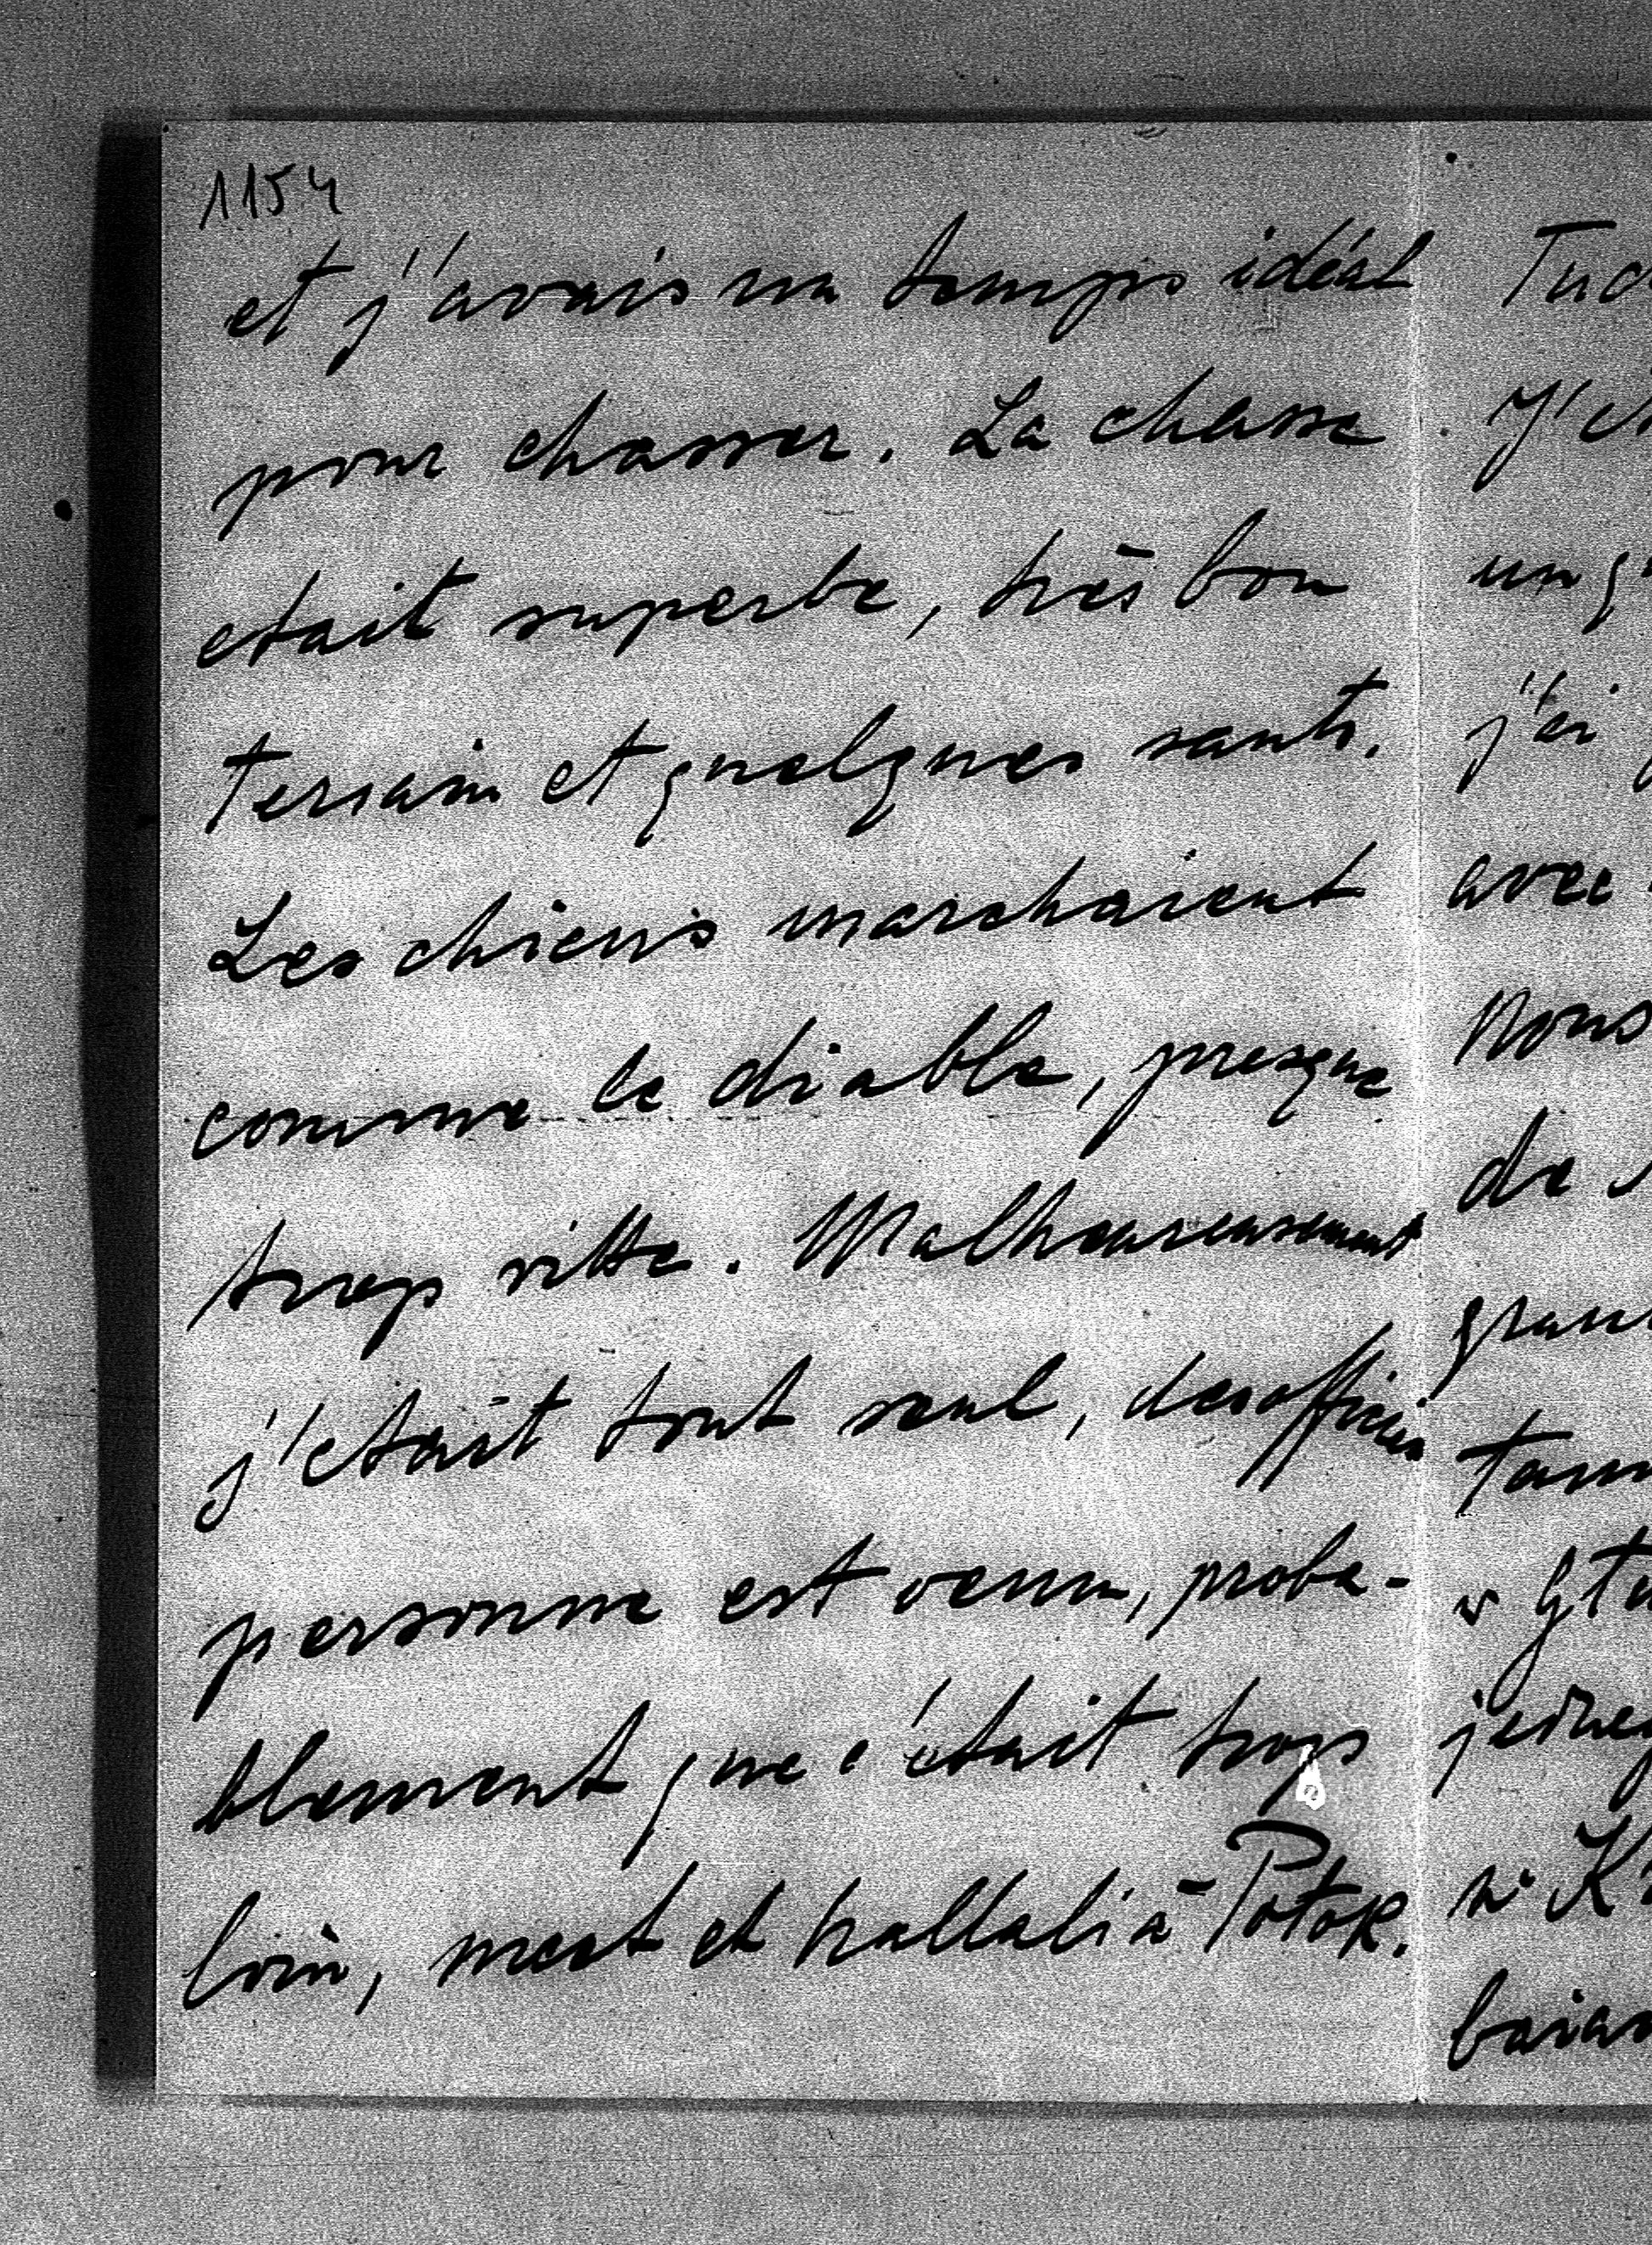 1154
et j'avais un temps idéal
pour chasser. La chasse
etait superbe, très bon
terrain et quelques sauts.
Les chiens marchaient
comme le diable, presque
trop vitte. Malheureusement
j'etait tout seul, des officiers
personne est venu, proba-
blement que c'était trop
loin, meet et hallali à Potok.
Tuc
J'ét
un
j'ai
avec
nous
de
gran
tam
v
jedne
w K
baian